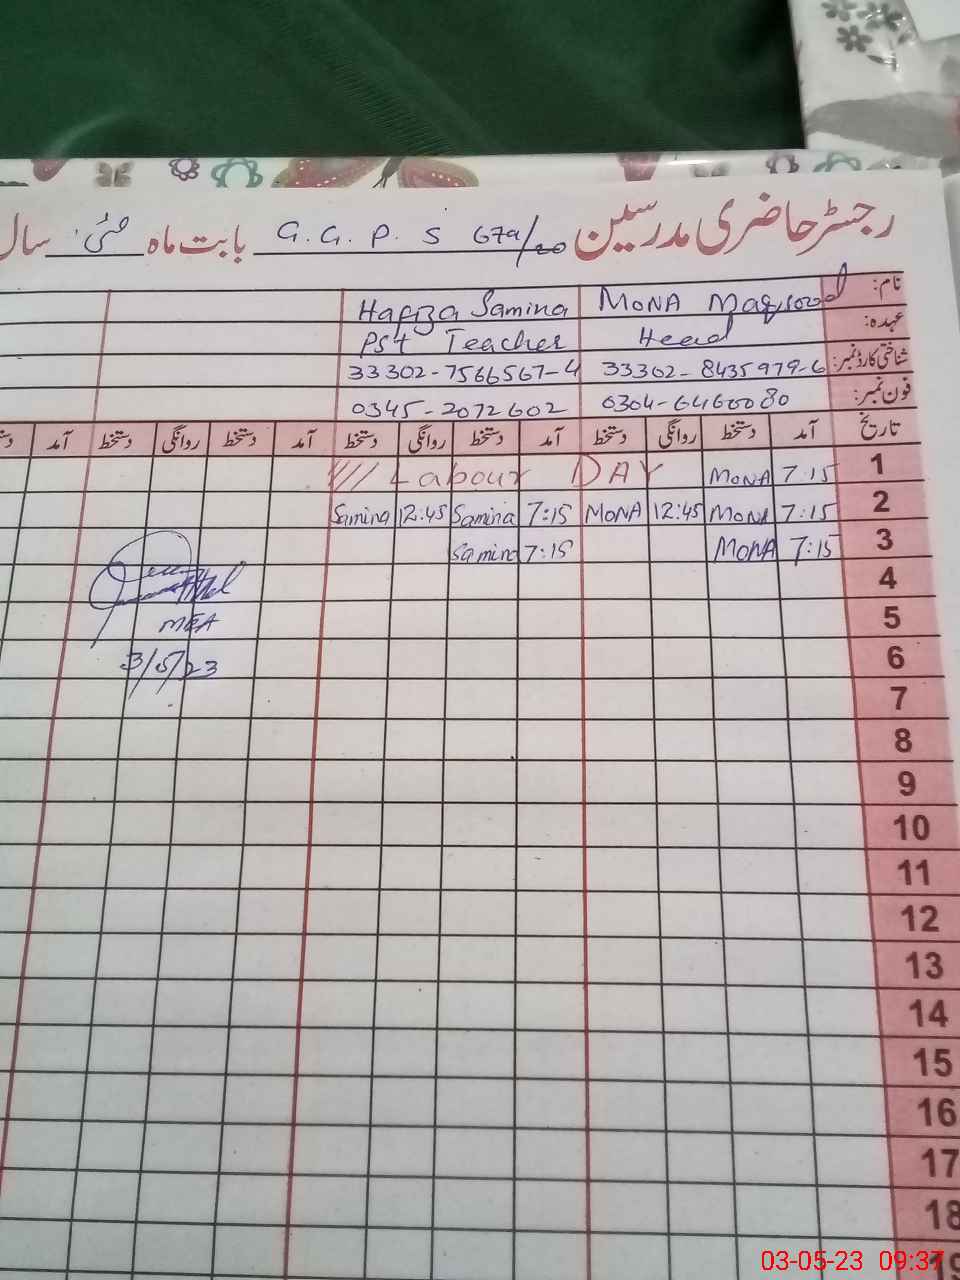 رجسٹر حاضری مدرسین G.G.P.S 679/20 بابت ماہ مئی سال
نام: MONA Maqsood Hafiza Samina
عہدہ: Head PST Teacher
شناختی کارڈ نمبر: 33302-8435979-6 33302-7566567-4
فون نمبر: 0304-6460080 0345-2072602
تاریخ آمد دستخط روانگی دستخط آمد دستخط روانگی دستخط آمد دستخط روانگی دستخط آمد
1 7:15 MONA Labour DAY
2 7:15 MONA 12:45 MONA 7:15 Samina 12:45 Samina
3 7:15 MONA 7:15 Samina
4
5 MEA
6 3/5/23
7
8
9
10
11
12
13
14
15
16
17
18
19
03-05-23 09:37